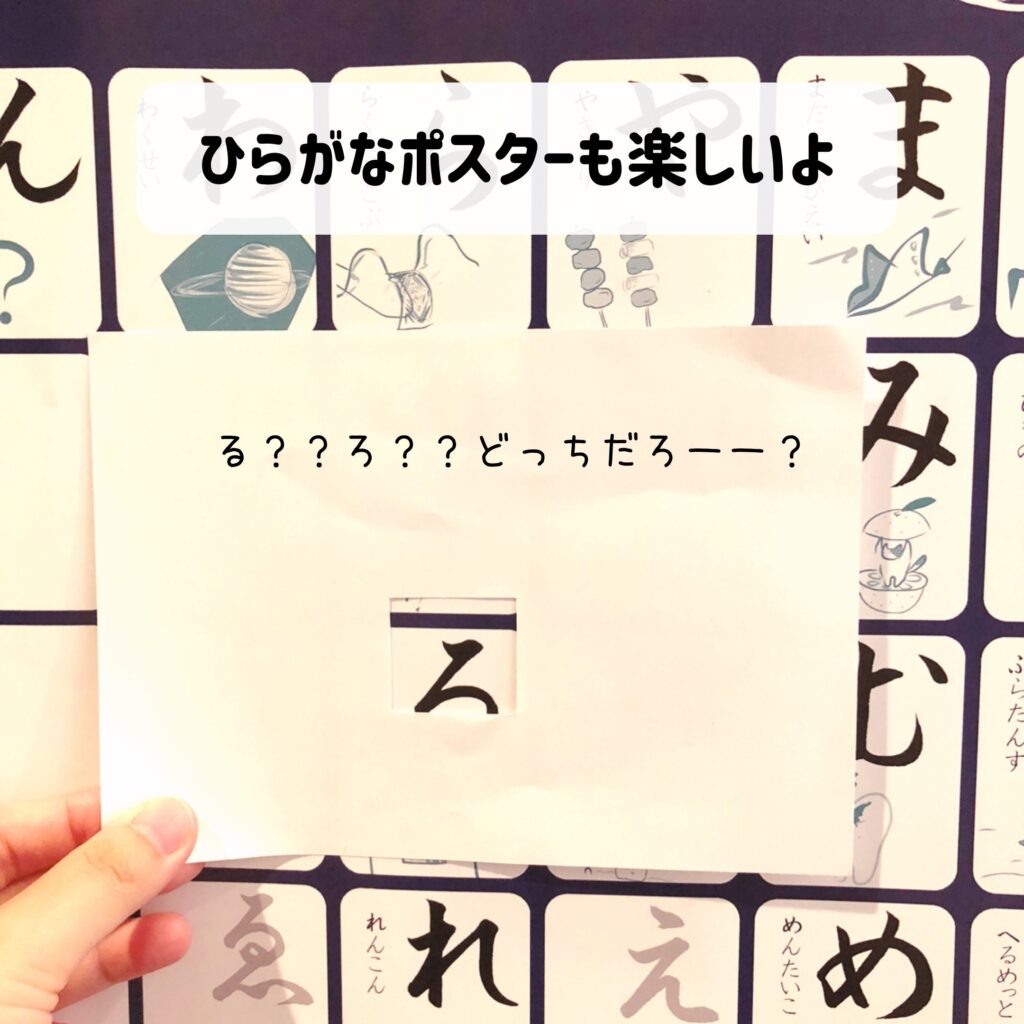 ひらがなポスターも楽しいよ
ん
？
わ
わくせい
ら
や
ま
る？？ろ？？どっちだろーー？
み
ろ
む
ふらたんす
ゑ
れ
れんこん
え
め
めんたいこ
へるめっと